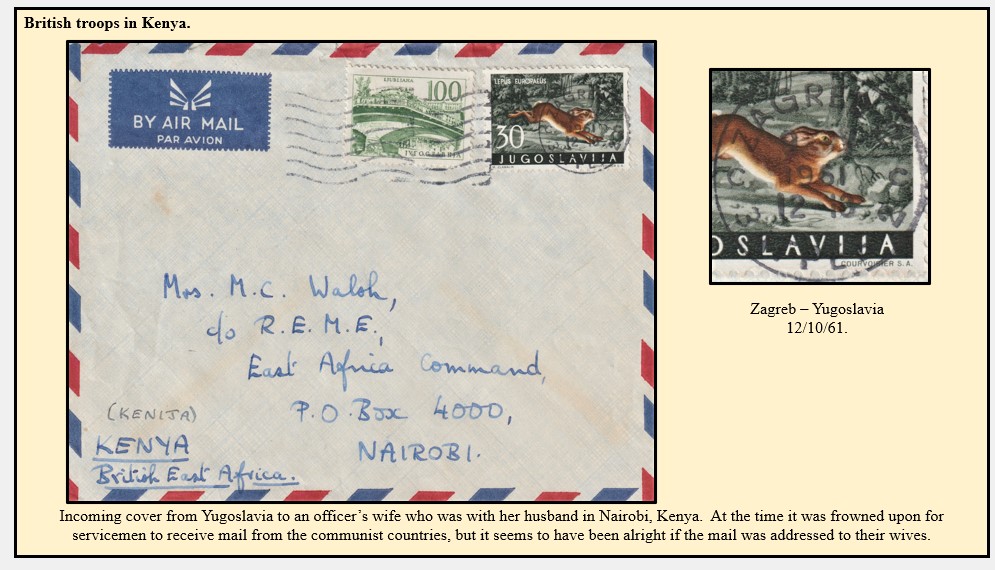 British troops in Kenya.
BY AIR MAIL
PAR AVION
LJUBLJANA
100
JUGOSLAVIJA
LEPUS EUROPAEUS
30
JUGOSLAVIJA
Mrs. M.C. Walsh,
c/o R.E.M.E.,
East Africa Command,
P.O. Box 4000,
NAIROBI.
(KENIJA)
KENYA
British East Africa.
ZAGREB
1961
12
OSLAVIJA
COURVOISIER S.A.
Zagreb – Yugoslavia
12/10/61.
Incoming cover from Yugoslavia to an officer’s wife who was with her husband in Nairobi, Kenya. At the time it was frowned upon for
servicemen to receive mail from the communist countries, but it seems to have been alright if the mail was addressed to their wives.